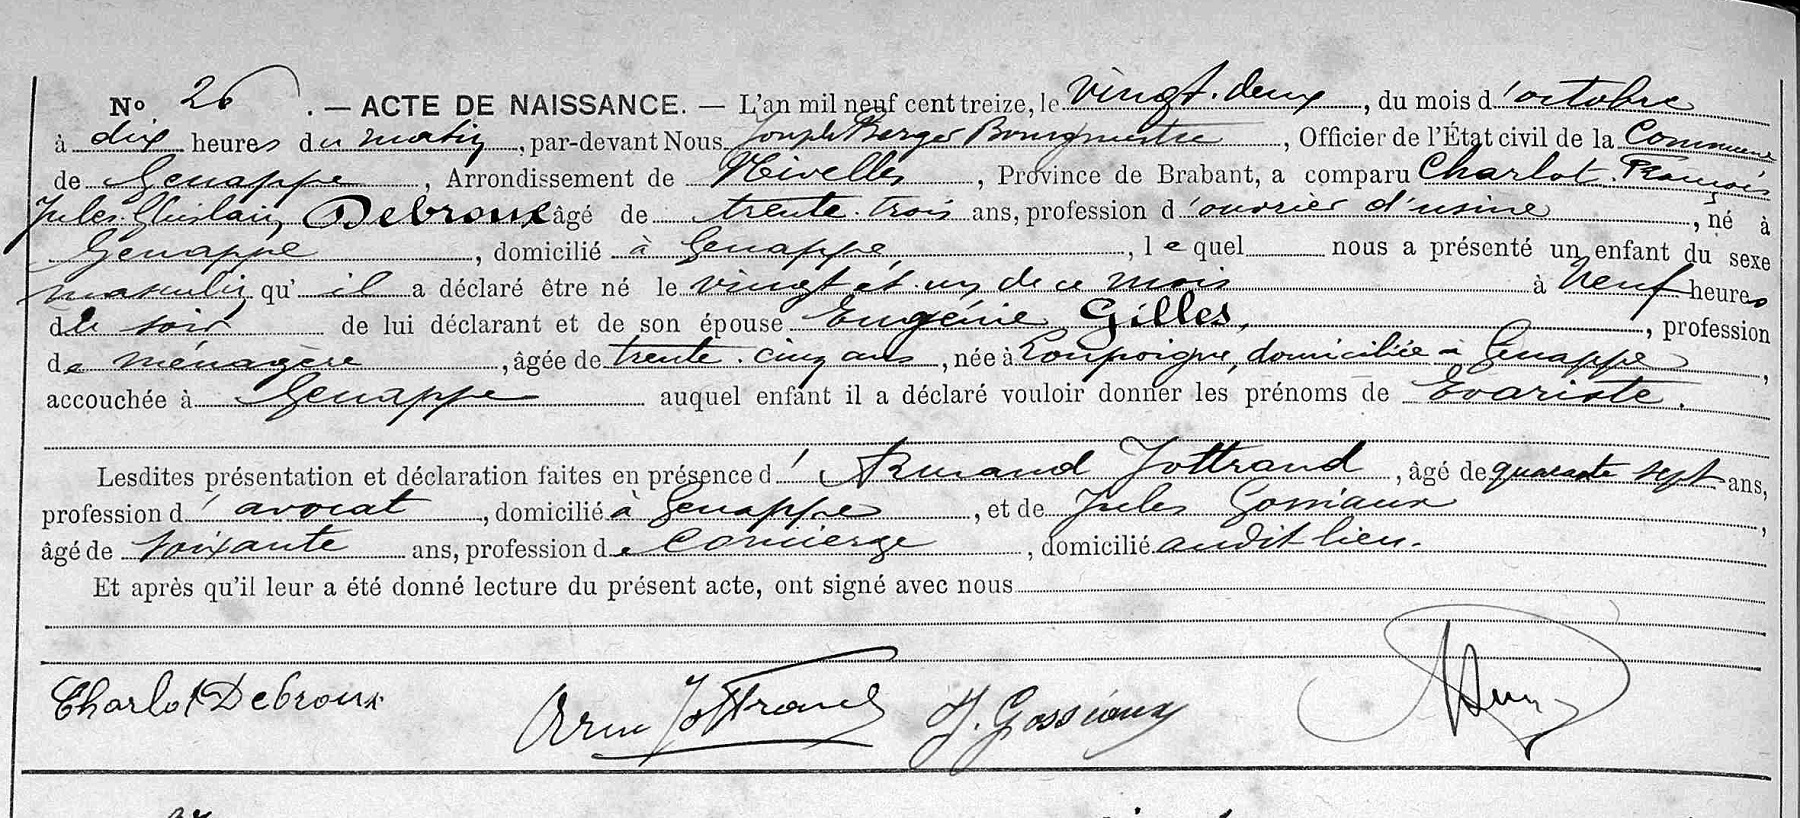 No 26. — ACTE DE NAISSANCE. — L'an mil neuf cent treize, le vingt-deux, du mois d'octobre
à dix heures du matin, par-devant Nous Joseph Berger Bourgmestre, Officier de l'État civil de la Commune
de Genappe, Arrondissement de Nivelles, Province de Brabant, a comparu Charlot François
Jules Ghislain Debroux âgé de trente-trois ans, profession d'ouvrier d'usine, né à
Genappe, domicilié à Genappe, lequel nous a présenté un enfant du sexe
masculin qu'il a déclaré être né le vingt et un de ce mois à neuf heures
du soir de lui déclarant et de son épouse Eugénie Gilles, profession
de ménagère, âgée de trente-cinq ans, née à Loupoigne, domiciliée à Genappe,
accouchée à Genappe auquel enfant il a déclaré vouloir donner les prénoms de Evariste.
Lesdites présentation et déclaration faites en présence d'Armand Jottrand, âgé de quarante sept ans,
profession d'avocat, domicilié à Genappe, et de Jules Gossiaux,
âgé de soixante ans, profession de Concierge, domicilié audit lieu.
Et après qu'il leur a été donné lecture du présent acte, ont signé avec nous
Charlot Debroux Arm Jottrand J. Gossiaux